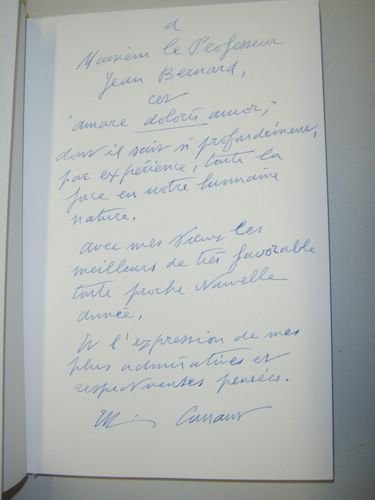 à
Monsieur le Professeur
Jean Bernard,
cet
"amare doloris amor,"
dont il sait si profondément,
par expérience, toute la
face en notre humaine
nature.
avec mes vœux les
meilleurs de très favorable
toute proche Nouvelle
Année,
Et l'expression de mes
plus admiratives et
respectueuses pensées.